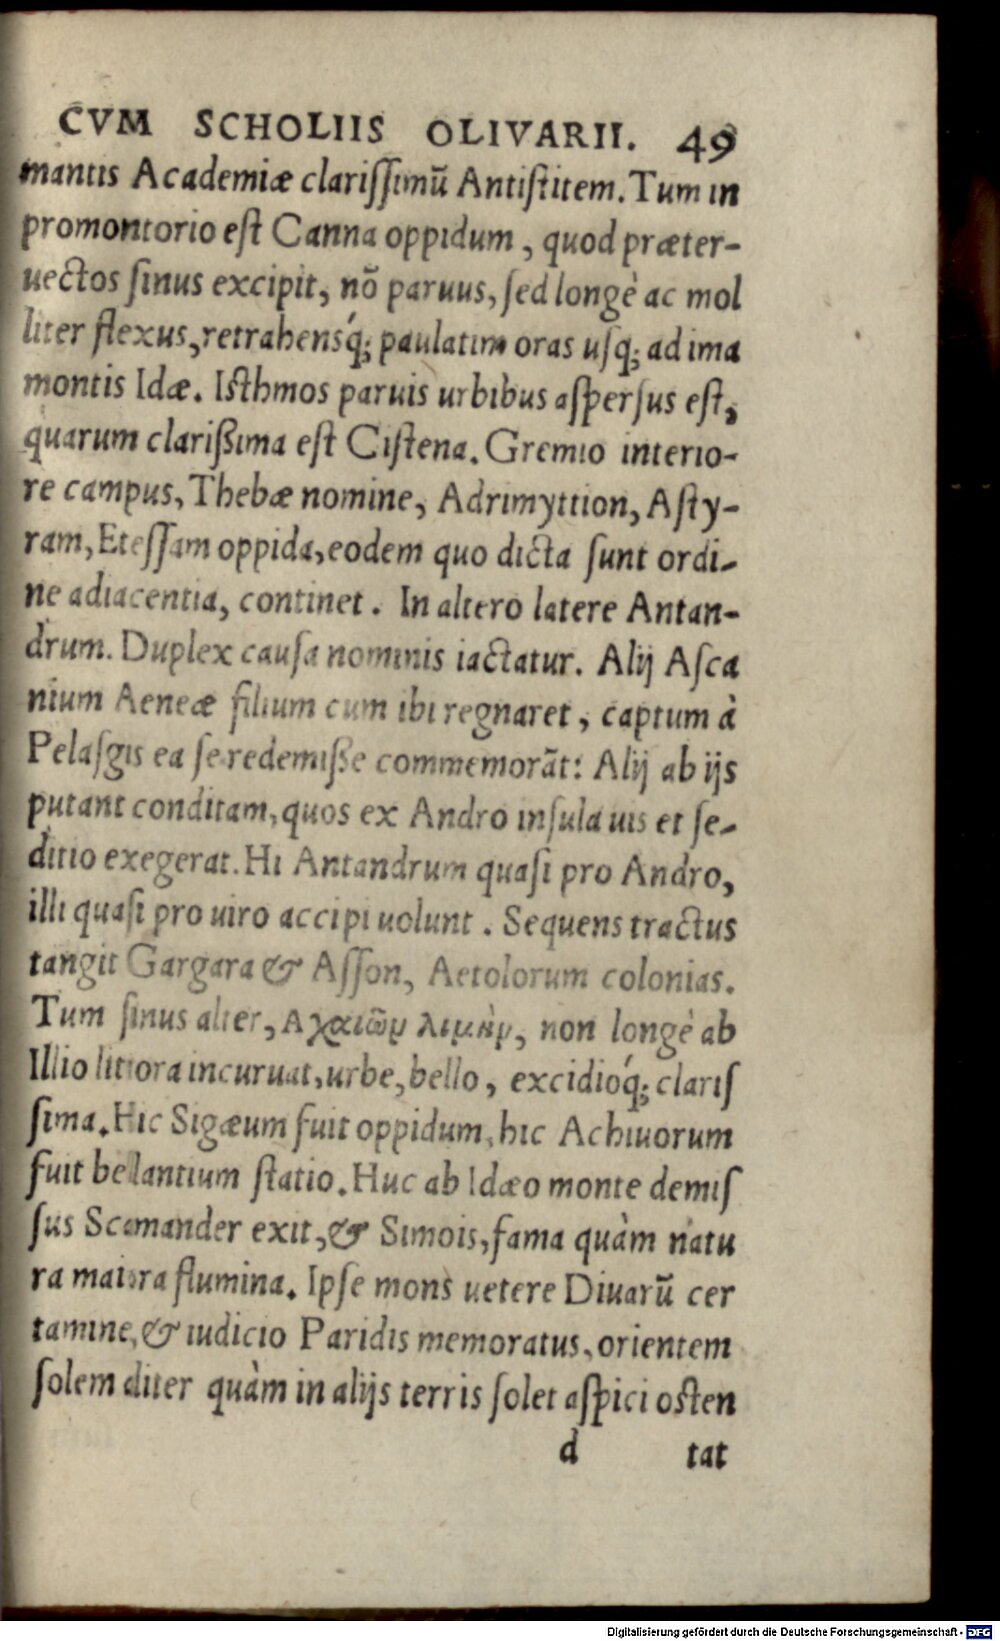 CVM SCHOLIIS OLIVARII. 49
mantis Academiæ clarisſimū Antiſtitem. Tum in
promontorio eſt Canna oppidum, quod præter-
uectos ſinus excipit, nō paruus, ſed longè ac mol
liter flexus, retrahensq́; paulatim oras uſq; ad ima
montis Idæ. Iſthmos paruis urbibus aſperſus eſt,
quarum clarißima eſt Ciſtena. Gremio interio-
re campus, Thebæ nomine, Adrimyttion, Aſty-
ram, Eteſſam oppida, eodem quo dicta ſunt ordi-
ne adiacentia, continet. In altero latere Antan-
drum. Duplex cauſa nominis iactatur. Alij Aſca
nium Aeneæ filium cum ibi regnaret, captum à
Pelaſgis ea ſe redemiſſe commemorāt: Alij ab ijs
putant conditam, quos ex Andro inſula uis et ſe-
ditio exegerat. Hi Antandrum quaſi pro Andro,
illi quaſi pro uiro accipi uolunt. Sequens tractus
tangit Gargara & Aſſon, Aetolorum colonias.
Tum ſinus alter, Αχαιῶν λιμὴν, non longè ab
Illio littora incuruat, urbe, bello, excidioq́; clariſ
ſima. Hic Sigæum fuit oppidum, hic Achiuorum
fuit bellantium ſtatio. Huc ab Idæo monte demiſ
ſus Scamander exit, & Simois, fama quàm natu
ra maiora flumina. Ipſe mons uetere Diuarū cer
tamine, & iudicio Paridis memoratus, orientem
ſolem aliter quàm in alijs terris ſolet aſpici oſten
d tat
Digitalisierung gefördert durch die Deutsche Forschungsgemeinschaft - DFG